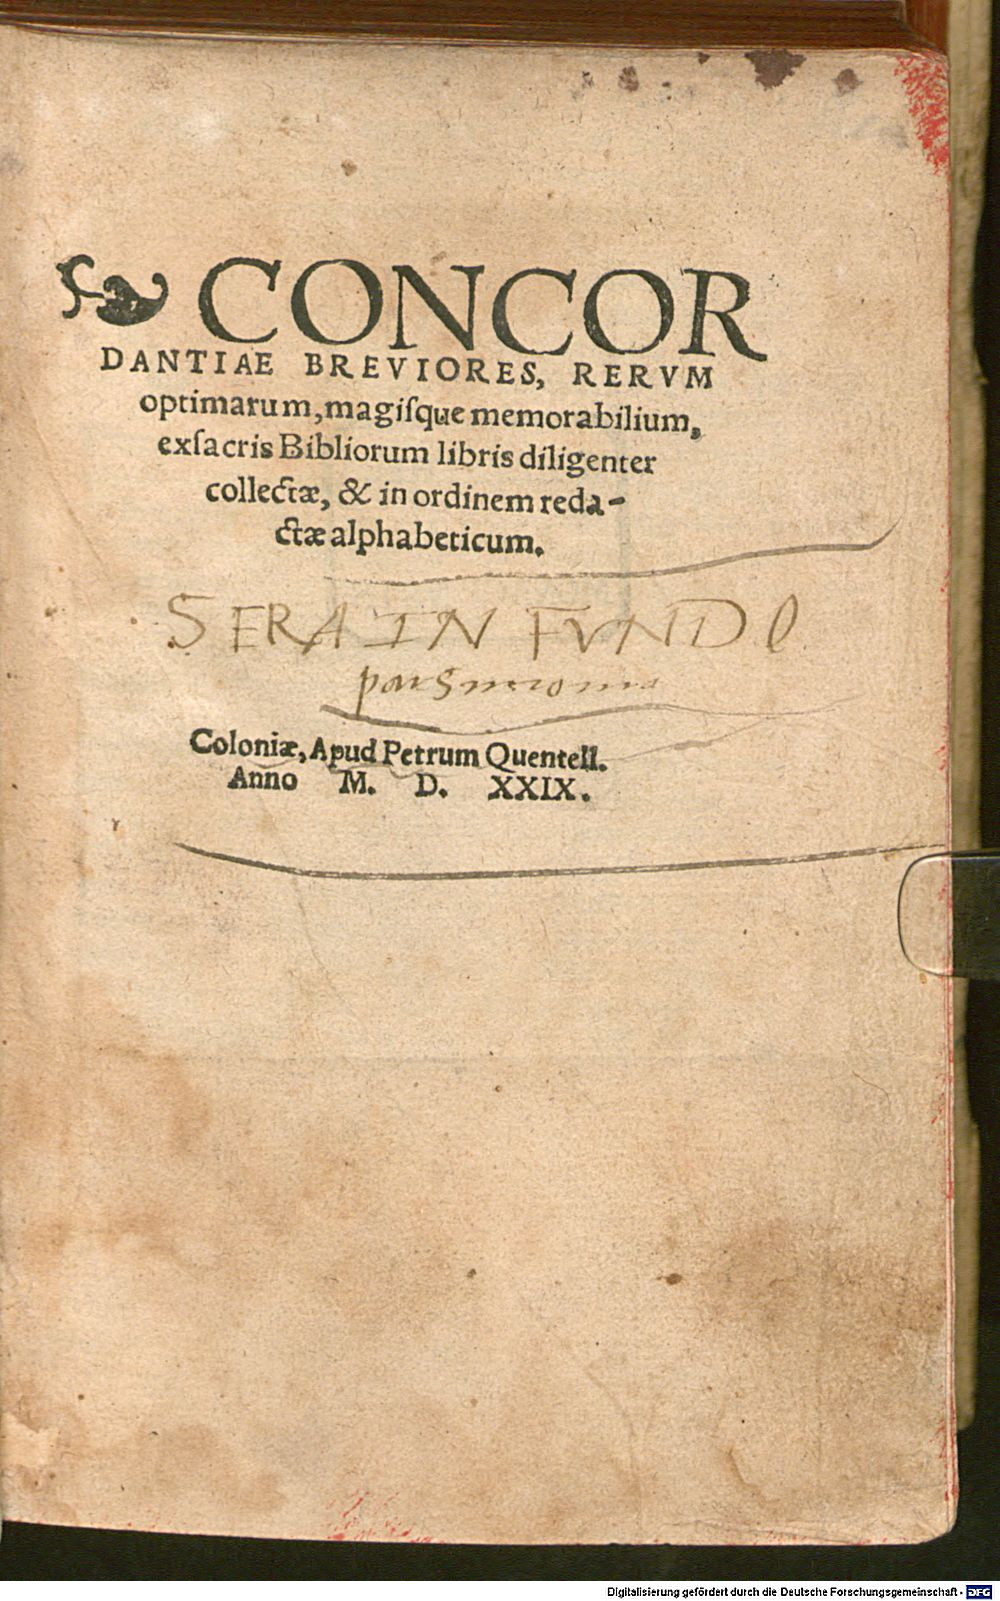 CONCOR
DANTIAE BREVIORES, RERVM
optimarum, magiſque memorabilium,
exſacris Bibliorum libris diligenter
collectæ, & in ordinem reda-
ctæ alphabeticum.
SERA IN FVNDO
parsimonia
Coloniæ, Apud Petrum Quentell.
Anno M. D. XXIX.
Digitalisierung gefördert durch die Deutsche Forschungsgemeinschaft - DFG